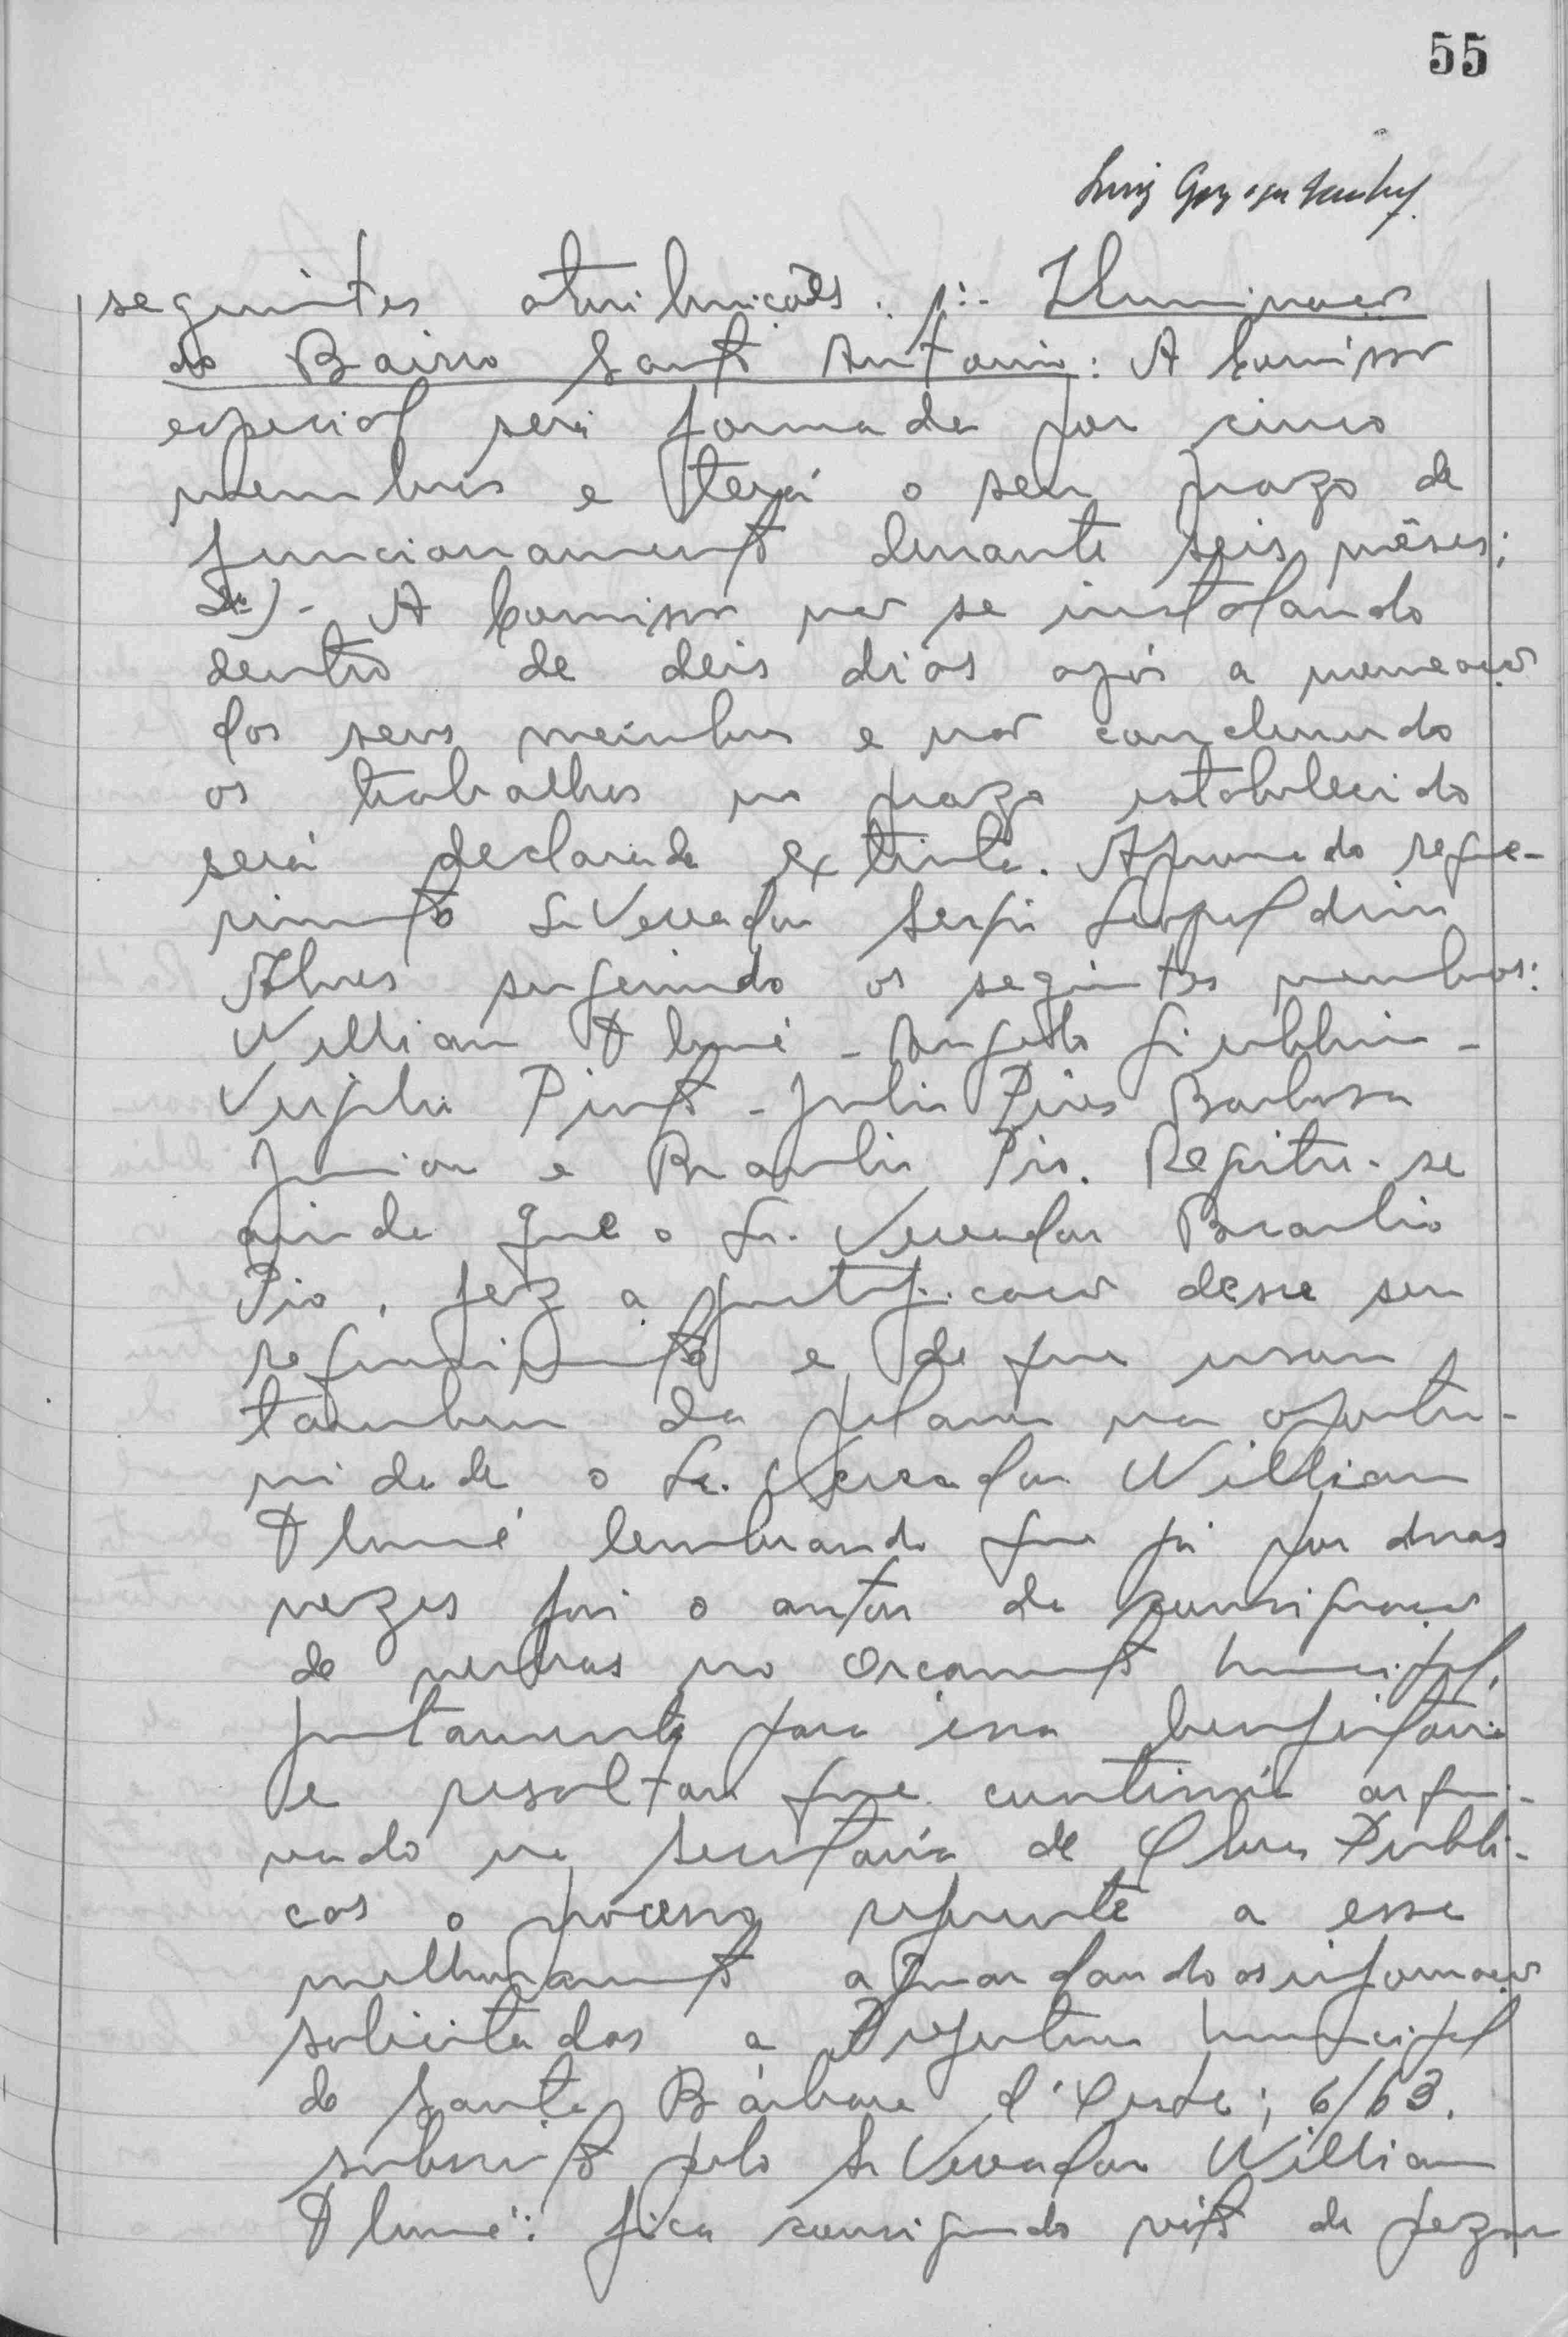 55
seguintes atribuições: 1ª:- Iluminação
do Bairro Santo Antonio: A Comissão
especial será formada por cinco
membros e terá o seu prazo de
funcionamento durante seis mêses;
2ª)- A Comissão não se instalando
dentro de deis dias após a nomeação
dos seus meimbros e não concluindo
os trabalhos no prazo estabelecido
será declarada extinta. Aprovado reque-
rimento Sr Vereador Sergio Leopoldino
Alves sugerindo os seguintes membros:
Willian Alumé - Angelo Giubbina -
Virgilio Pinto - Julio Pires Barbosa
Junior e Braulio Pio. Registre-se
ainda que o Sr. Vereador Braulio
Pio, fez a justificação desse seu
requerimento e de que usou
tambem da palavra na oportu-
nidade o Sr. Vereador Willian
lembrando que já por duas
vezes foi o autor da consignação
de verbas no Orçamento Municipal,
justamente para essa benfeitoria
e resaltou que continúa arqui-
vado na Secretaria de Obras Publi-
cas o processo referente a esse
melhoramento aguardando as informações
solicitadas a Prefeitura Municipal
de Santa Bárbara d'Oeste; 6/63.
subscrito pelo Sr Vereador Willian
fica consignado voto de pezar